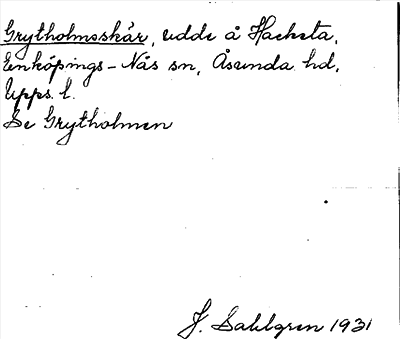 Grytholmsskär, udde å Hacksta,
Enköpings-Näs sn, Åsunda hd,
Upps. l.
Se Grytholmen
J. Sahlgren 1931